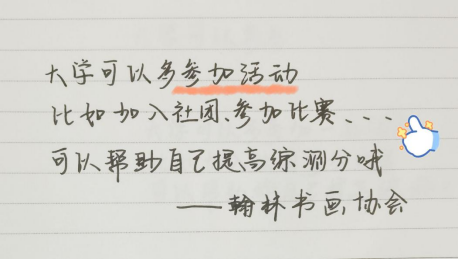 大学可以多参加活动
比如加入社团、参加比赛、...
可以帮助自己提高综测分哦
——翰林书画协会